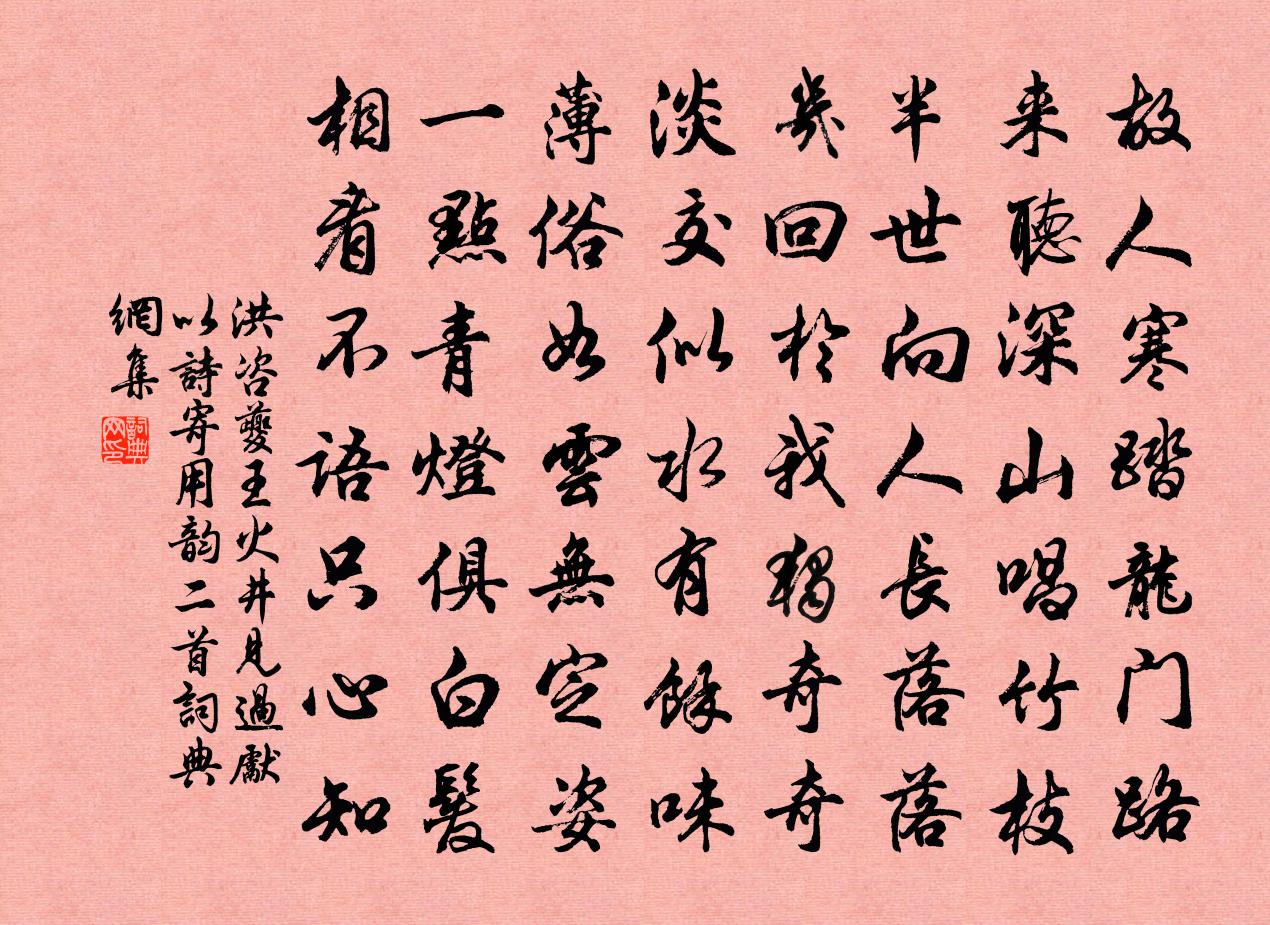 故人寒踏龍门路
来聽深山唱竹枝
半世向人長落落
幾回於我獨奇奇
淡交似水有餘味
薄俗如雲無定姿
一點青燈俱白髮
相看不語只心知
洪咨夔王火井見過獻
以詩寄用韵二首詞典
網集
詞典
网印